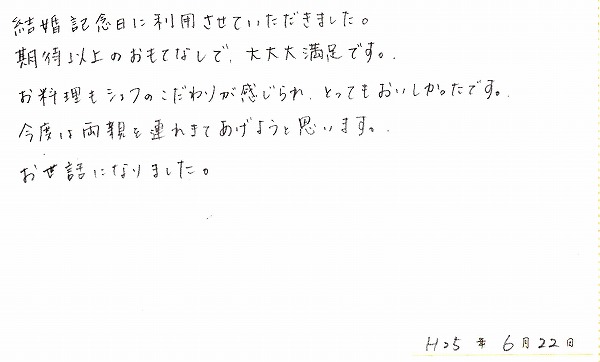 結婚記念日に利用させていただきました。
期待以上のおもてなしで、大大大満足です。
お料理もシェフのこだわりが感じられ、とってもおいしかったです。
今度は両親を連れきてあげようと思います。
お世話になりました。
H25年6月22日